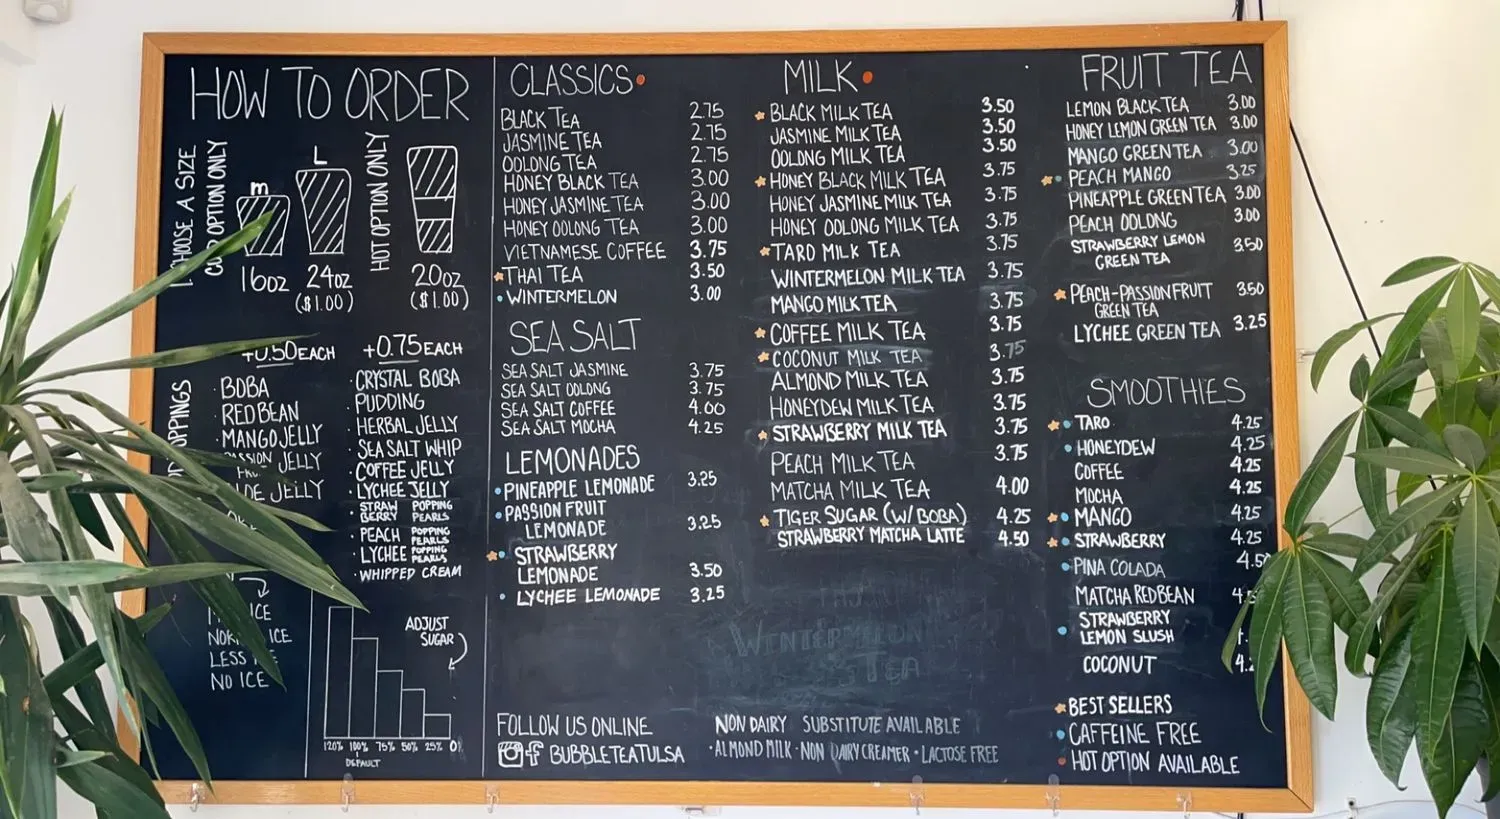 HOW TO ORDER
CHOOSE A SIZE
COLD OPTION ONLY
M
16OZ
L
24OZ
($1.00)
HOT OPTION ONLY
20OZ
($1.00)
+0.50 EACH
· BOBA
· RED BEAN
· MANGO JELLY
PASSION JELLY
JELLY
+0.75 EACH
· CRYSTAL BOBA
· PUDDING
· HERBAL JELLY
· SEA SALT WHIP
· COFFEE JELLY
· LYCHEE JELLY
· STRAWBERRY POPPING PEARLS
· PEACH POPPING PEARLS
· LYCHEE POPPING PEARLS
· WHIPPED CREAM
ICE
ICE
LESS
NO ICE
ADJUST
SUGAR
120% 100% 75% 50% 25% 0%
DEFAULT
CLASSICS
BLACK TEA 2.75
JASMINE TEA 2.75
OOLONG TEA 2.75
HONEY BLACK TEA 3.00
HONEY JASMINE TEA 3.00
HONEY OOLONG TEA 3.00
VIETNAMESE COFFEE 3.75
THAI TEA 3.50
WINTERMELON 3.00
SEA SALT
SEA SALT JASMINE 3.75
SEA SALT OOLONG 3.75
SEA SALT COFFEE 4.00
SEA SALT MOCHA 4.25
LEMONADES
PINEAPPLE LEMONADE 3.25
PASSION FRUIT
LEMONADE 3.25
STRAWBERRY
LEMONADE 3.50
LYCHEE LEMONADE 3.25
FOLLOW US ONLINE
BUBBLETEATULSA
MILK
BLACK MILK TEA 3.50
JASMINE MILK TEA 3.50
OOLONG MILK TEA 3.50
HONEY BLACK MILK TEA 3.75
HONEY JASMINE MILK TEA 3.75
HONEY OOLONG MILK TEA 3.75
TARO MILK TEA 3.75
WINTERMELON MILK TEA 3.75
MANGO MILK TEA 3.75
COFFEE MILK TEA 3.75
COCONUT MILK TEA 3.75
ALMOND MILK TEA 3.75
HONEYDEW MILK TEA 3.75
STRAWBERRY MILK TEA 3.75
PEACH MILK TEA 3.75
MATCHA MILK TEA 4.00
TIGER SUGAR (W/ BOBA) 4.25
STRAWBERRY MATCHA LATTE 4.50
WINTERMELON
TEA
NON DAIRY SUBSTITUTE AVAILABLE
· ALMOND MILK · NON DAIRY CREAMER · LACTOSE FREE
FRUIT TEA
LEMON BLACK TEA 3.00
HONEY LEMON GREEN TEA 3.00
MANGO GREEN TEA 3.00
PEACH MANGO 3.25
PINEAPPLE GREEN TEA 3.00
PEACH OOLONG 3.00
STRAWBERRY LEMON
GREEN TEA 3.50
PEACH-PASSIONFRUIT 3.50
GREEN TEA
LYCHEE GREEN TEA 3.25
SMOOTHIES
TARO 4.25
HONEYDEW 4.25
COFFEE 4.25
MOCHA 4.25
MANGO 4.25
STRAWBERRY 4.25
PINA COLADA 4.50
MATCHA REDBEAN
STRAWBERRY
LEMON SLUSH
COCONUT
BEST SELLERS
CAFFEINE FREE
HOT OPTION AVAILABLE